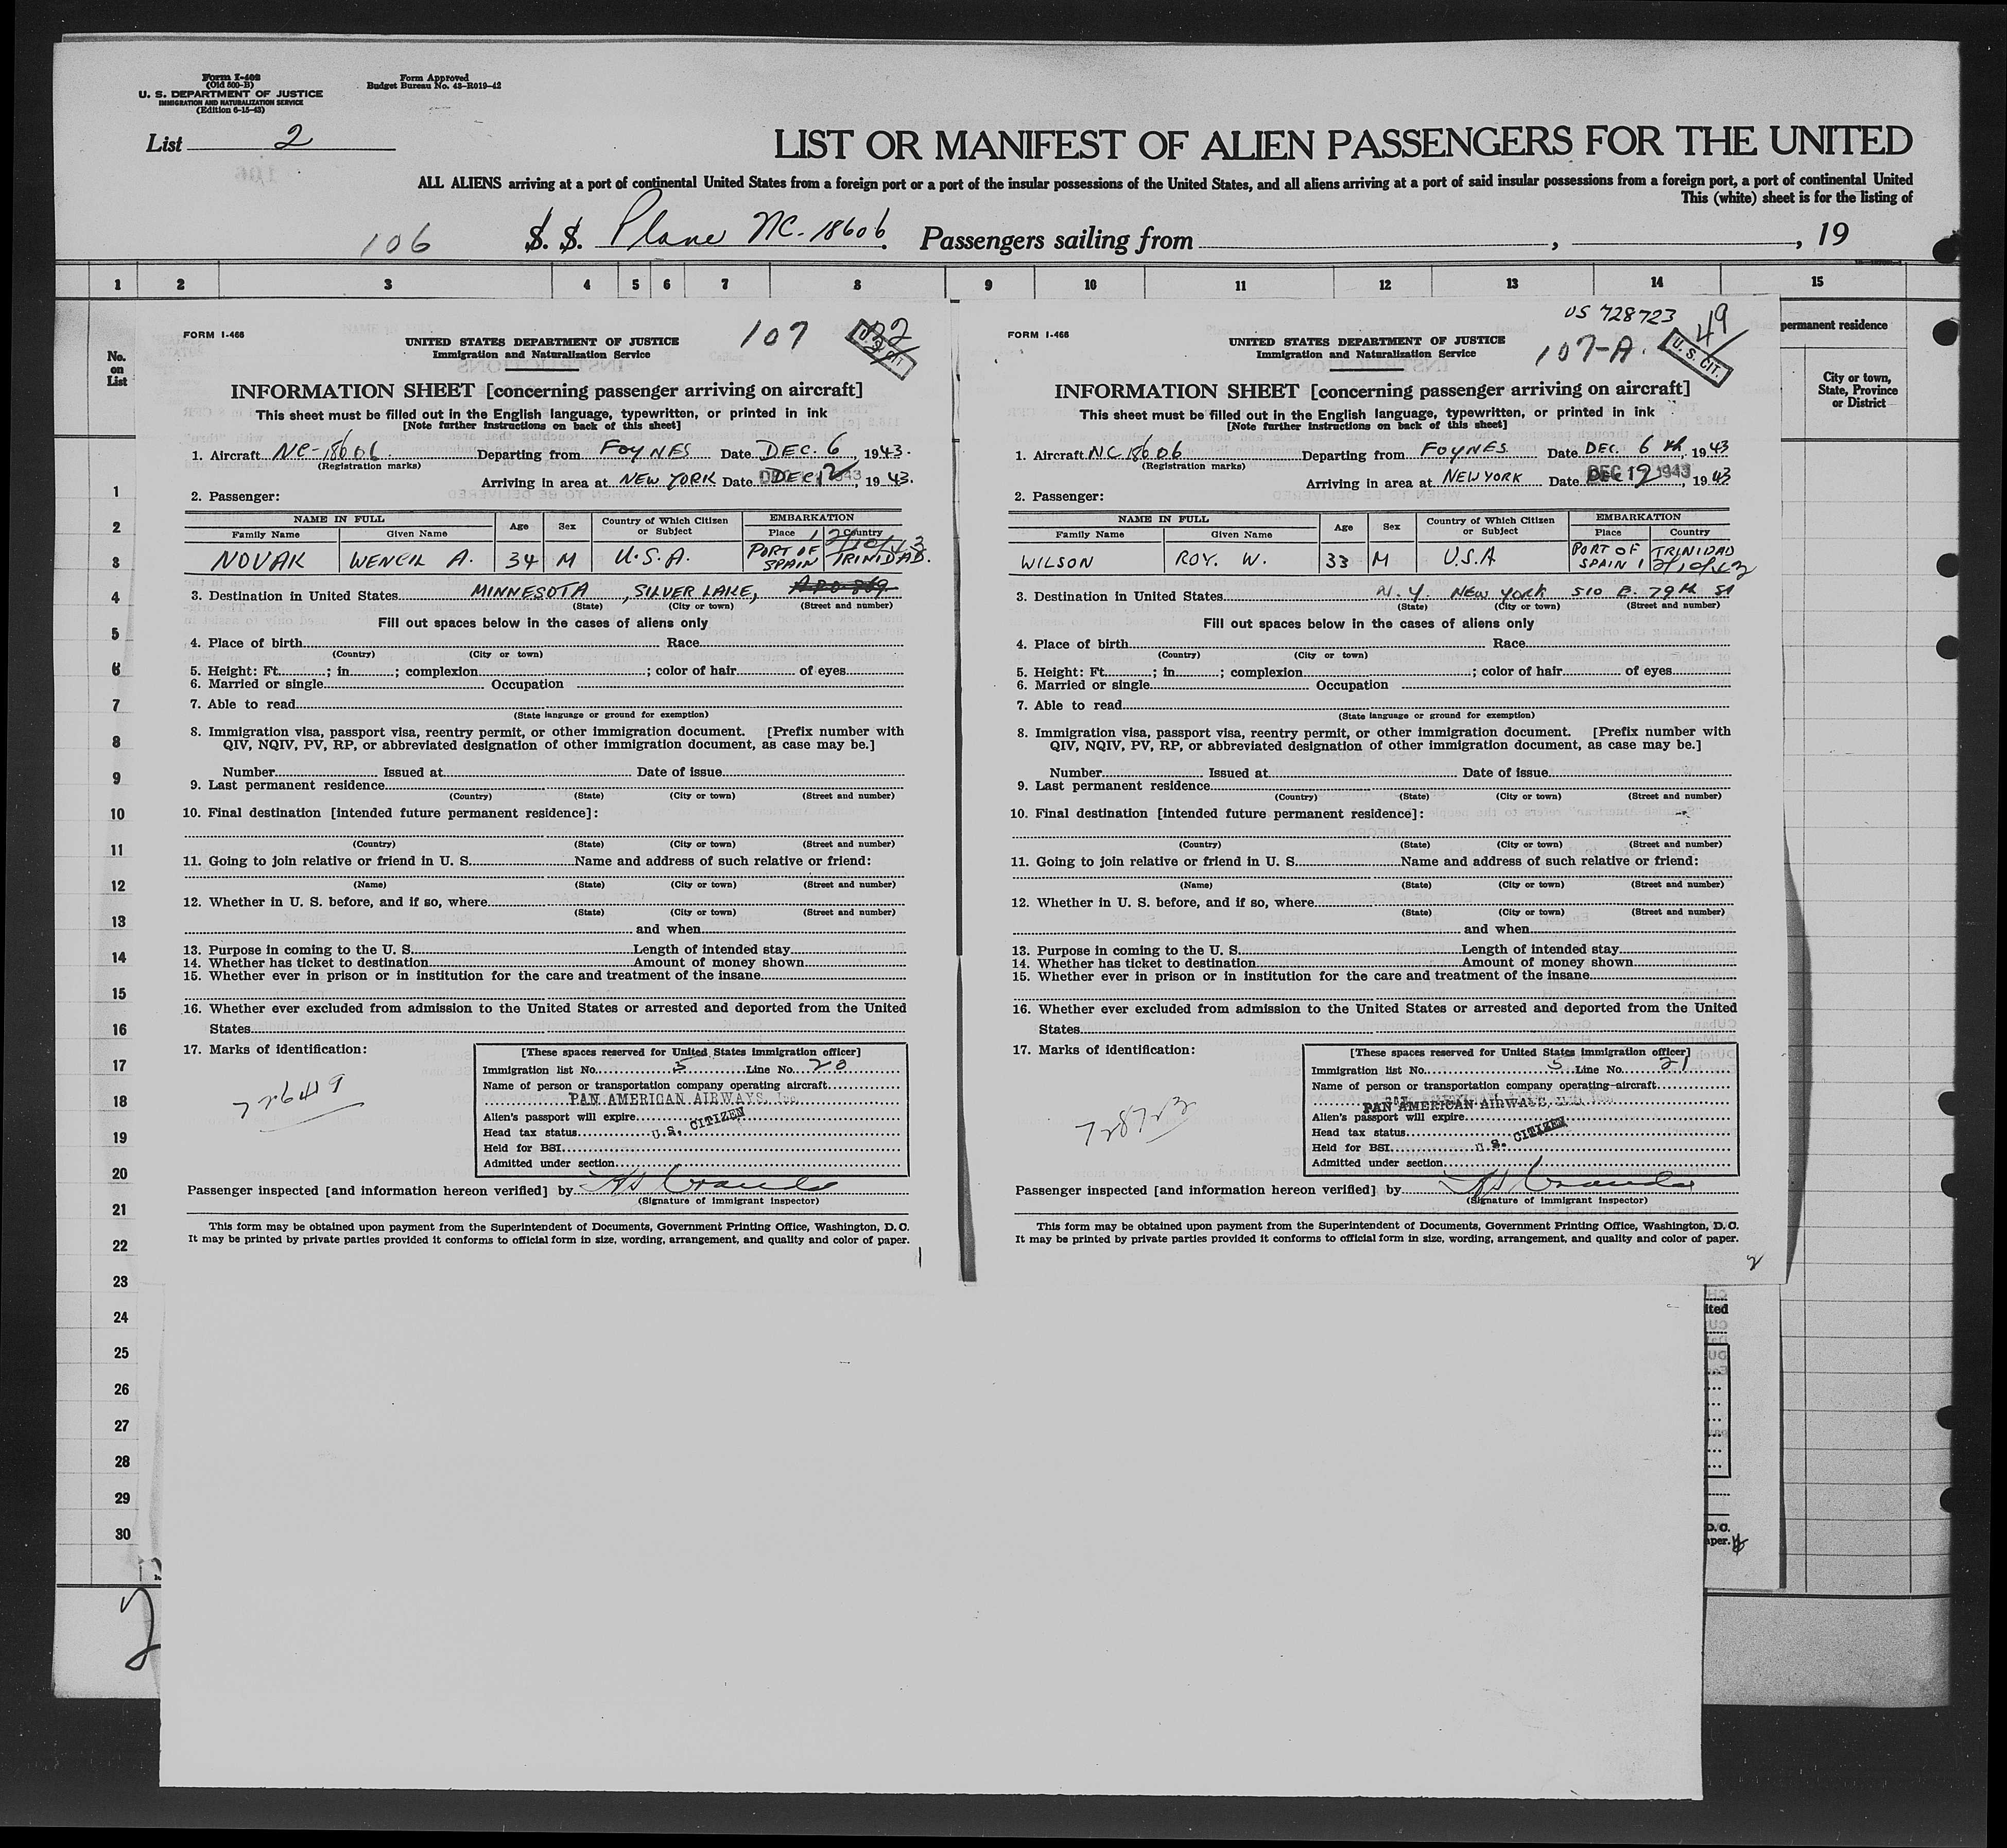 Form I-402
(Old 500-B)
U. S. DEPARTMENT OF JUSTICE
IMMIGRATION AND NATURALIZATION SERVICE
(Edition 6-15-43)
Form Approved
Budget Bureau No. 43-R019-42
List 2
LIST OR MANIFEST OF ALIEN PASSENGERS FOR THE UNITED
ALL ALIENS arriving at a port of continental United States from a foreign port or a port of the insular possessions of the United States, and all aliens arriving at a port of said insular possessions from a foreign port, a port of continental United
This (white) sheet is for the listing of
106 S. S. Plane NC. 18606 Passengers sailing from , , 19
1 2 3 4 5 6 7 8 9 10 11 12 13 14 15
No.
on
List
permanent residence
City or town,
State, Province
or District
1
2
3
4
5
6
7
8
9
10
11
12
13
14
15
16
17
18
19
20
21
22
23
24
25
26
27
28
29
30
2
FORM I-466
UNITED STATES DEPARTMENT OF JUSTICE
Immigration and Naturalization Service
107
U.S. CIT.
INFORMATION SHEET [concerning passenger arriving on aircraft]
This sheet must be filled out in the English language, typewritten, or printed in ink
[Note further instructions on back of this sheet]
1. Aircraft NC-18606 Departing from FOYNES Date DEC. 6, 1943.
(Registration marks)
Arriving in area at NEW YORK Date DEC 12, 1943.
2. Passenger:
NAME IN FULL Age Sex Country of Which Citizen or Subject EMBARKATION
Family Name Given Name Place Country
NOVAK WENCIL A. 34 M U.S.A. PORT OF SPAIN TRINIDAD.
3. Destination in United States MINNESOTA, SILVER LAKE,
(State) (City or town) (Street and number)
Fill out spaces below in the cases of aliens only
4. Place of birth Race
(Country) (City or town)
5. Height: Ft. ; in ; complexion ; color of hair of eyes
6. Married or single Occupation
7. Able to read
(State language or ground for exemption)
8. Immigration visa, passport visa, reentry permit, or other immigration document. [Prefix number with
QIV, NQIV, PV, RP, or abbreviated designation of other immigration document, as case may be.]
Number Issued at Date of issue
9. Last permanent residence
(Country) (State) (City or town) (Street and number)
10. Final destination [intended future permanent residence]:
(Country) (State) (City or town) (Street and number)
11. Going to join relative or friend in U. S. Name and address of such relative or friend:
(Name) (State) (City or town) (Street and number)
12. Whether in U. S. before, and if so, where
(State) (City or town) (Street and number)
and when
13. Purpose in coming to the U. S. Length of intended stay
14. Whether has ticket to destination Amount of money shown
15. Whether ever in prison or in institution for the care and treatment of the insane
16. Whether ever excluded from admission to the United States or arrested and deported from the United
States
17. Marks of identification:
726419
[These spaces reserved for United States immigration officer]
Immigration list No. 5 Line No. 20
Name of person or transportation company operating aircraft
PAN AMERICAN AIRWAYS, Inc.
Alien's passport will expire
Head tax status U.S. CITIZEN
Held for BSI
Admitted under section
Passenger inspected [and information hereon verified] by
(Signature of immigrant inspector)
This form may be obtained upon payment from the Superintendent of Documents, Government Printing Office, Washington, D. C.
It may be printed by private parties provided it conforms to official form in size, wording, arrangement, and quality and color of paper.
1
FORM I-466
UNITED STATES DEPARTMENT OF JUSTICE
Immigration and Naturalization Service
US 728723
107-A.
49
U. S. CIT.
INFORMATION SHEET [concerning passenger arriving on aircraft]
This sheet must be filled out in the English language, typewritten, or printed in ink
[Note further instructions on back of this sheet]
1. Aircraft NC 18606 Departing from FOYNES Date DEC. 6th, 1943
(Registration marks)
Arriving in area at NEW YORK Date DEC 12 1943, 1943
2. Passenger:
NAME IN FULL Age Sex Country of Which Citizen or Subject EMBARKATION
Family Name Given Name Place Country
WILSON ROY. W. 33 M U.S.A PORT OF SPAIN TRINIDAD
3. Destination in United States N.Y. NEW YORK 510 E. 79th St
(State) (City or town) (Street and number)
Fill out spaces below in the cases of aliens only
4. Place of birth Race
(Country) (City or town)
5. Height: Ft. ; in ; complexion ; color of hair of eyes
6. Married or single Occupation
7. Able to read
(State language or ground for exemption)
8. Immigration visa, passport visa, reentry permit, or other immigration document. [Prefix number with
QIV, NQIV, PV, RP, or abbreviated designation of other immigration document, as case may be.]
Number Issued at Date of issue
9. Last permanent residence
(Country) (State) (City or town) (Street and number)
10. Final destination [intended future permanent residence]:
(Country) (State) (City or town) (Street and number)
11. Going to join relative or friend in U. S. Name and address of such relative or friend:
(Name) (State) (City or town) (Street and number)
12. Whether in U. S. before, and if so, where
(State) (City or town) (Street and number)
and when
13. Purpose in coming to the U. S. Length of intended stay
14. Whether has ticket to destination Amount of money shown
15. Whether ever in prison or in institution for the care and treatment of the insane
16. Whether ever excluded from admission to the United States or arrested and deported from the United
States
17. Marks of identification:
728723
[These spaces reserved for United States immigration officer]
Immigration list No. 5 Line No. 21
Name of person or transportation company operating aircraft
PAN AMERICAN AIRWAYS, Inc.
Alien's passport will expire
Head tax status U.S. CITIZEN
Held for BSI
Admitted under section
Passenger inspected [and information hereon verified] by
(Signature of immigrant inspector)
This form may be obtained upon payment from the Superintendent of Documents, Government Printing Office, Washington, D. C.
It may be printed by private parties provided it conforms to official form in size, wording, arrangement, and quality and color of paper.
2
ited
D. C.
aper.